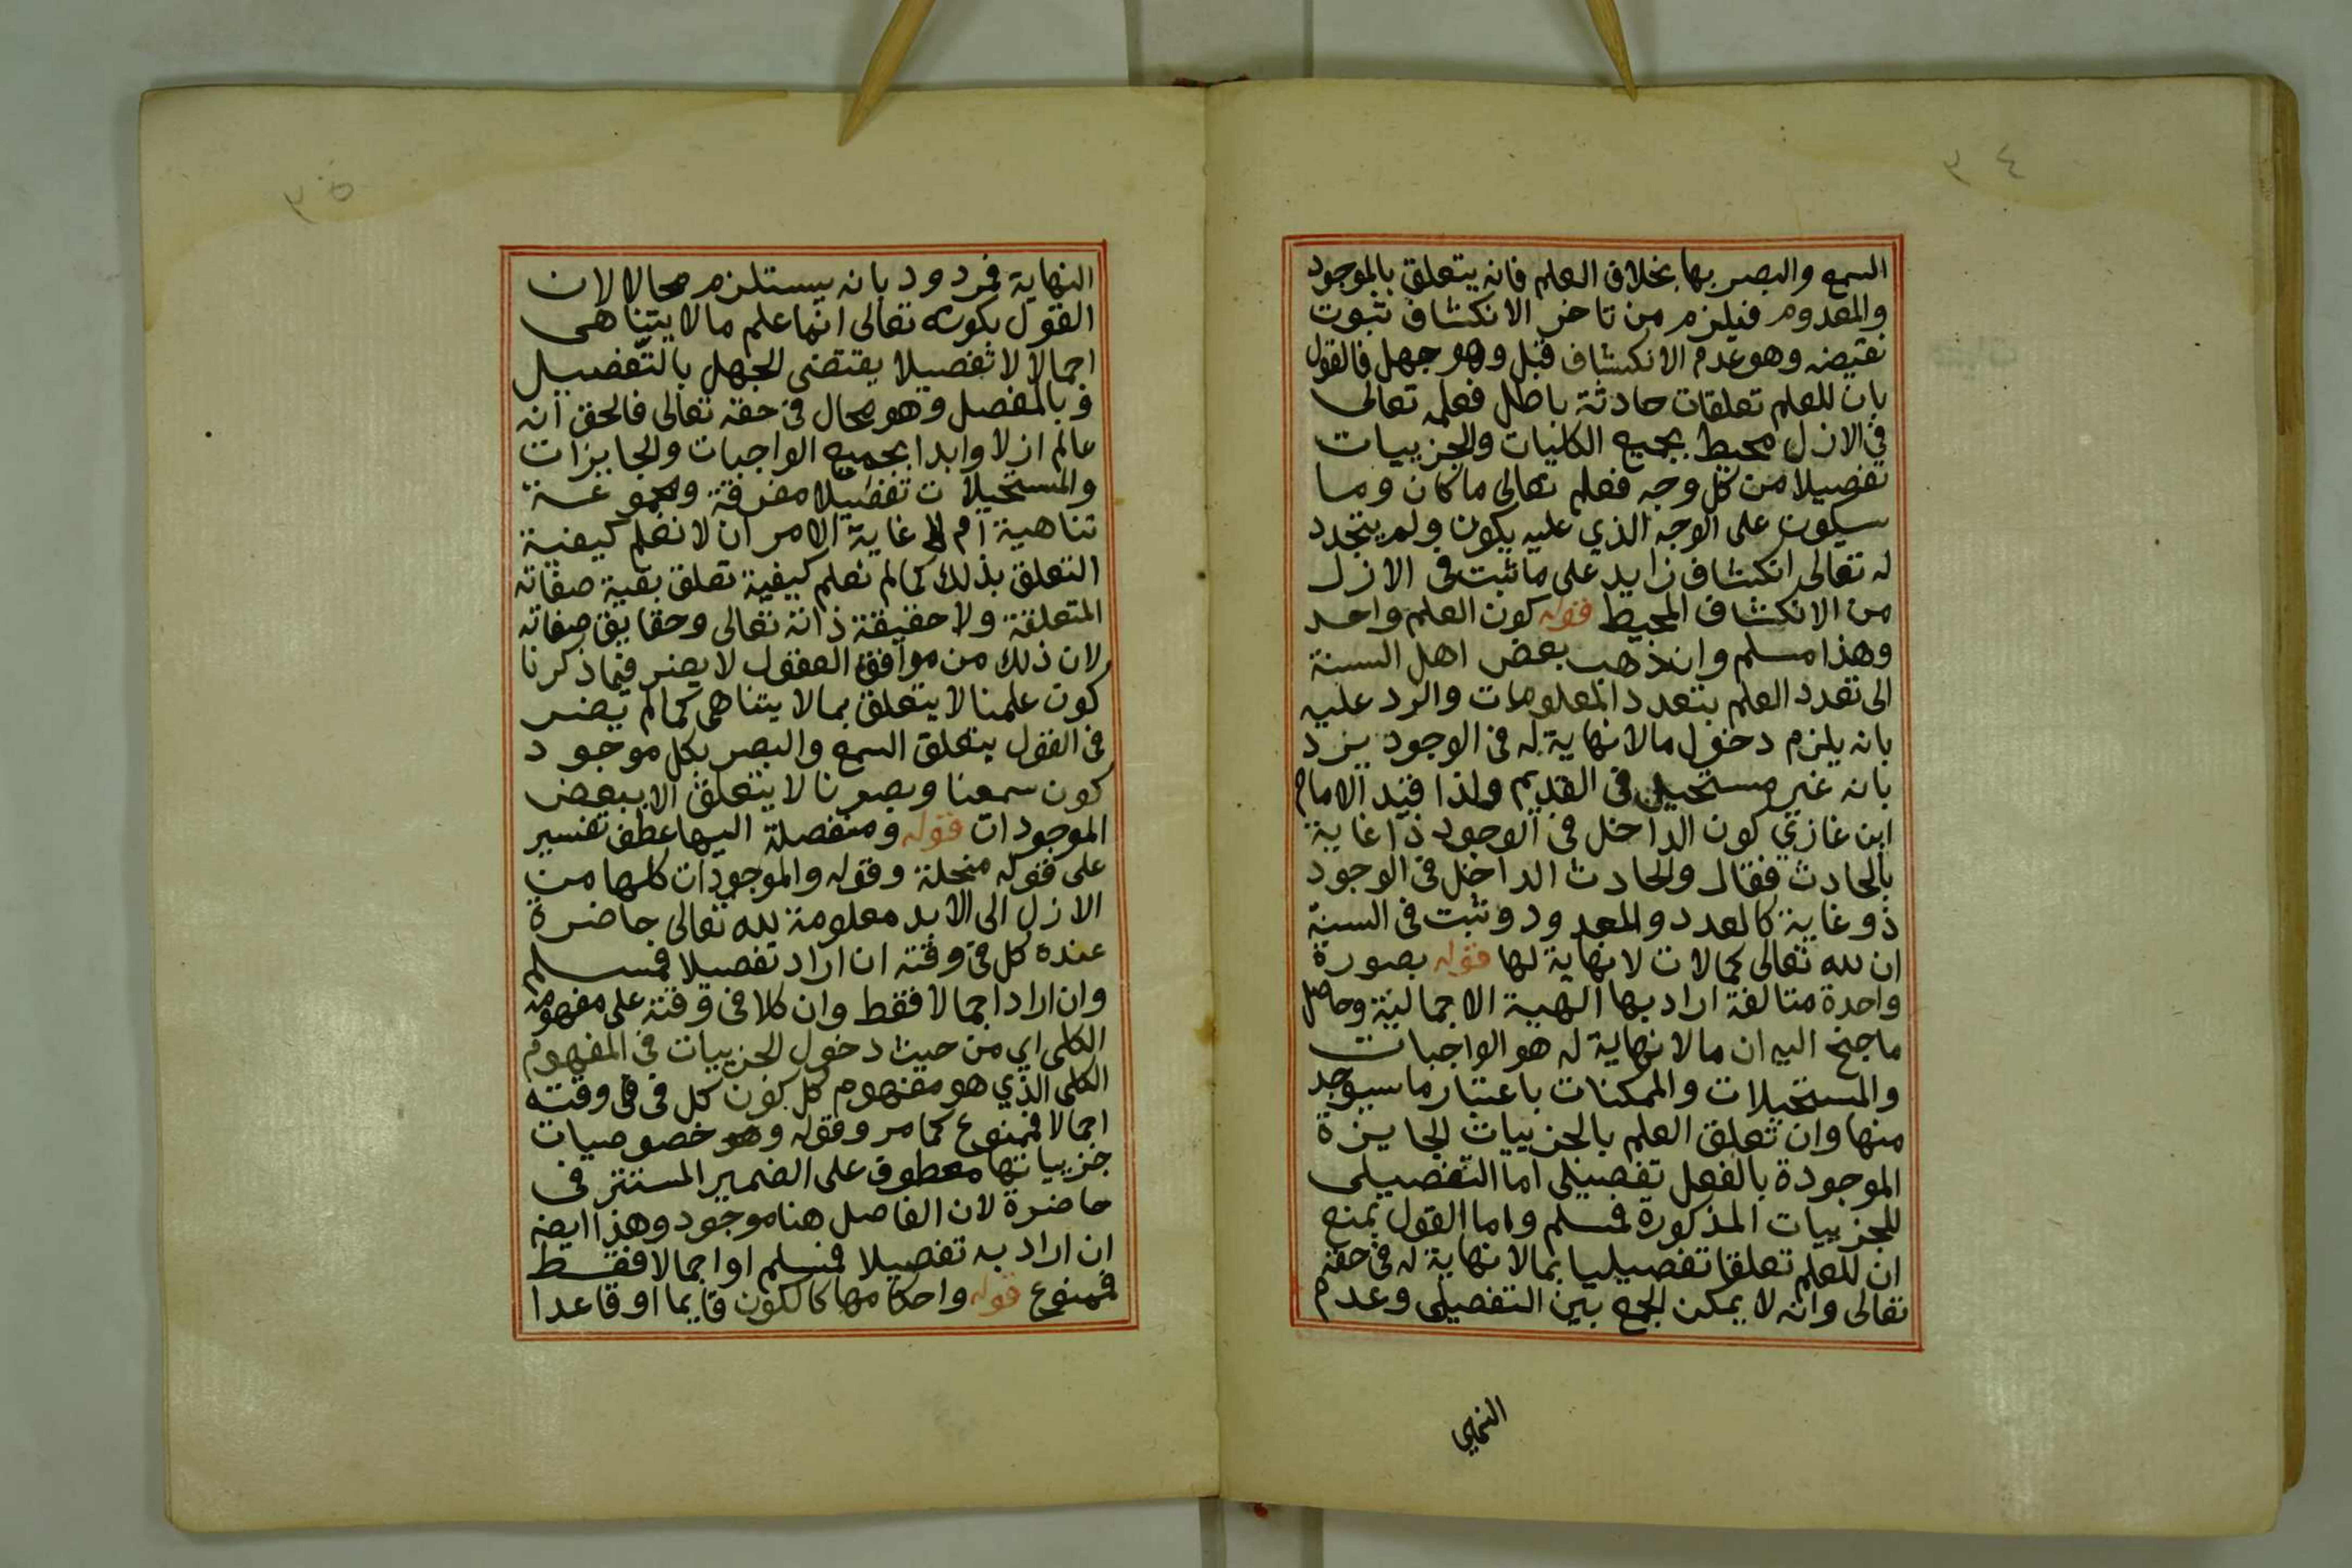 ٣٤
السمع والبصر بها بخلاف العلم فانه يتعلق بالموجود
والمعدوم فيلزم من تاخر الانكشاف ثبوت
نقيضه وهو عدم الانكشاف قبل وهو جهل فالقول
بان للعلم تعلقات حادثة باطل فعلمه تعالى
في الازل محيط بجميع الكليات والجزييات
تفصيلا من كل وجه فعلم تعالى ما كان وما
سيكون على الوجه الذي عليه يكون ولم يتجدد
له تعالى انكشاف زايد على ما ثبت في الازل
من الانكشاف المحيط قوله كون العلم واحد
وهذا مسلم وان ذهب بعض اهل السنة
الى تعدد العلم بتعدد المعلومات والرد عليه
بانه يلزم دخول ما لا نهاية له في الوجود يرد
بانه غير مستحيل في القديم ولذا قيد الامام
ابن غازي كون الداخل في الوجود ذا غاية
بالحادث فقال والحادث الداخل في الوجود
ذو غاية كالعدد والمعدود وثبت في السنة
ان لله تعالى كمالات لا نهاية لها قوله بصورة
واحدة متالفة اراد بها الهية الاجمالية وحاصل
ما جنح اليه ان ما لا نهاية له هو الواجبات
والمستحيلات والممكنات باعتبار ما سيوجد
منها وان تعلق العلم بالجزييات الجايزة
الموجودة بالفعل تفصيلي اما التفصيلى
للجزييات المذكورة فمسلم واما القول بمنع
ان للعلم تعلقا تفصيليا بما لا نهاية له في حقه
تعالى وانه لا يمكن الجمع بين التفصيلي وعدم
٣٥
النهاية فمردود بانه يستلزم محالا لان
القول بكونه تعالى انما علم ما لا يتناهى
اجمالا لا تفصيلا يقتضي الجهل بالتفصيل
وبالمفصل وهو محال في حقه تعالى فالحق انه
عالم ازلا وابدا بجميع الواجبات والجايزات
والمستحيلات تفصيلا مفرقة ومجموعة
تناهية ام لا غاية الامر ان لا نعلم كيفية
التعلق بذلك كما لم نعلم كيفية تعلق بقية صفاته
المتعلقة ولا حقيقة ذاته تعالى وحقايق صفاته
لان ذلك من مواقف العقول لا يضر فيما ذكرنا
كون علمنا لا يتعلق بما لا يتناهى كما لم يضر
في القول بتعلق السمع والبصر بكل موجود
كون سمعنا وبصرنا لا يتعلق الا ببعض
الموجودات قوله ومنفصلة اليها عطف تفسير
على قوله منحلة وقوله والموجودات كلها من
الازل الى الابد معلومة لله تعالى حاضرة
عنده كل في وقته ان اراد تفصيلا فمسلم
وان اراد اجمالا فقط وان كلا في وقته على مفهومه
الكلى اي من حيث دخول الجزييات في المفهوم
الكلى الذي هو مفهوم كل كون كل في في وقته
اجمالا فممنوع كما مر وقوله وهو خصوصيات
جزيياتها معطوف على الضمير المستتر في
حاضرة لان الفاصل هنا موجود وهذا ايضه
ان اراد به تفصيلا فمسلم او اجمالا فقط
فممنوع قوله واحكامها كالكون قايما او قاعدا